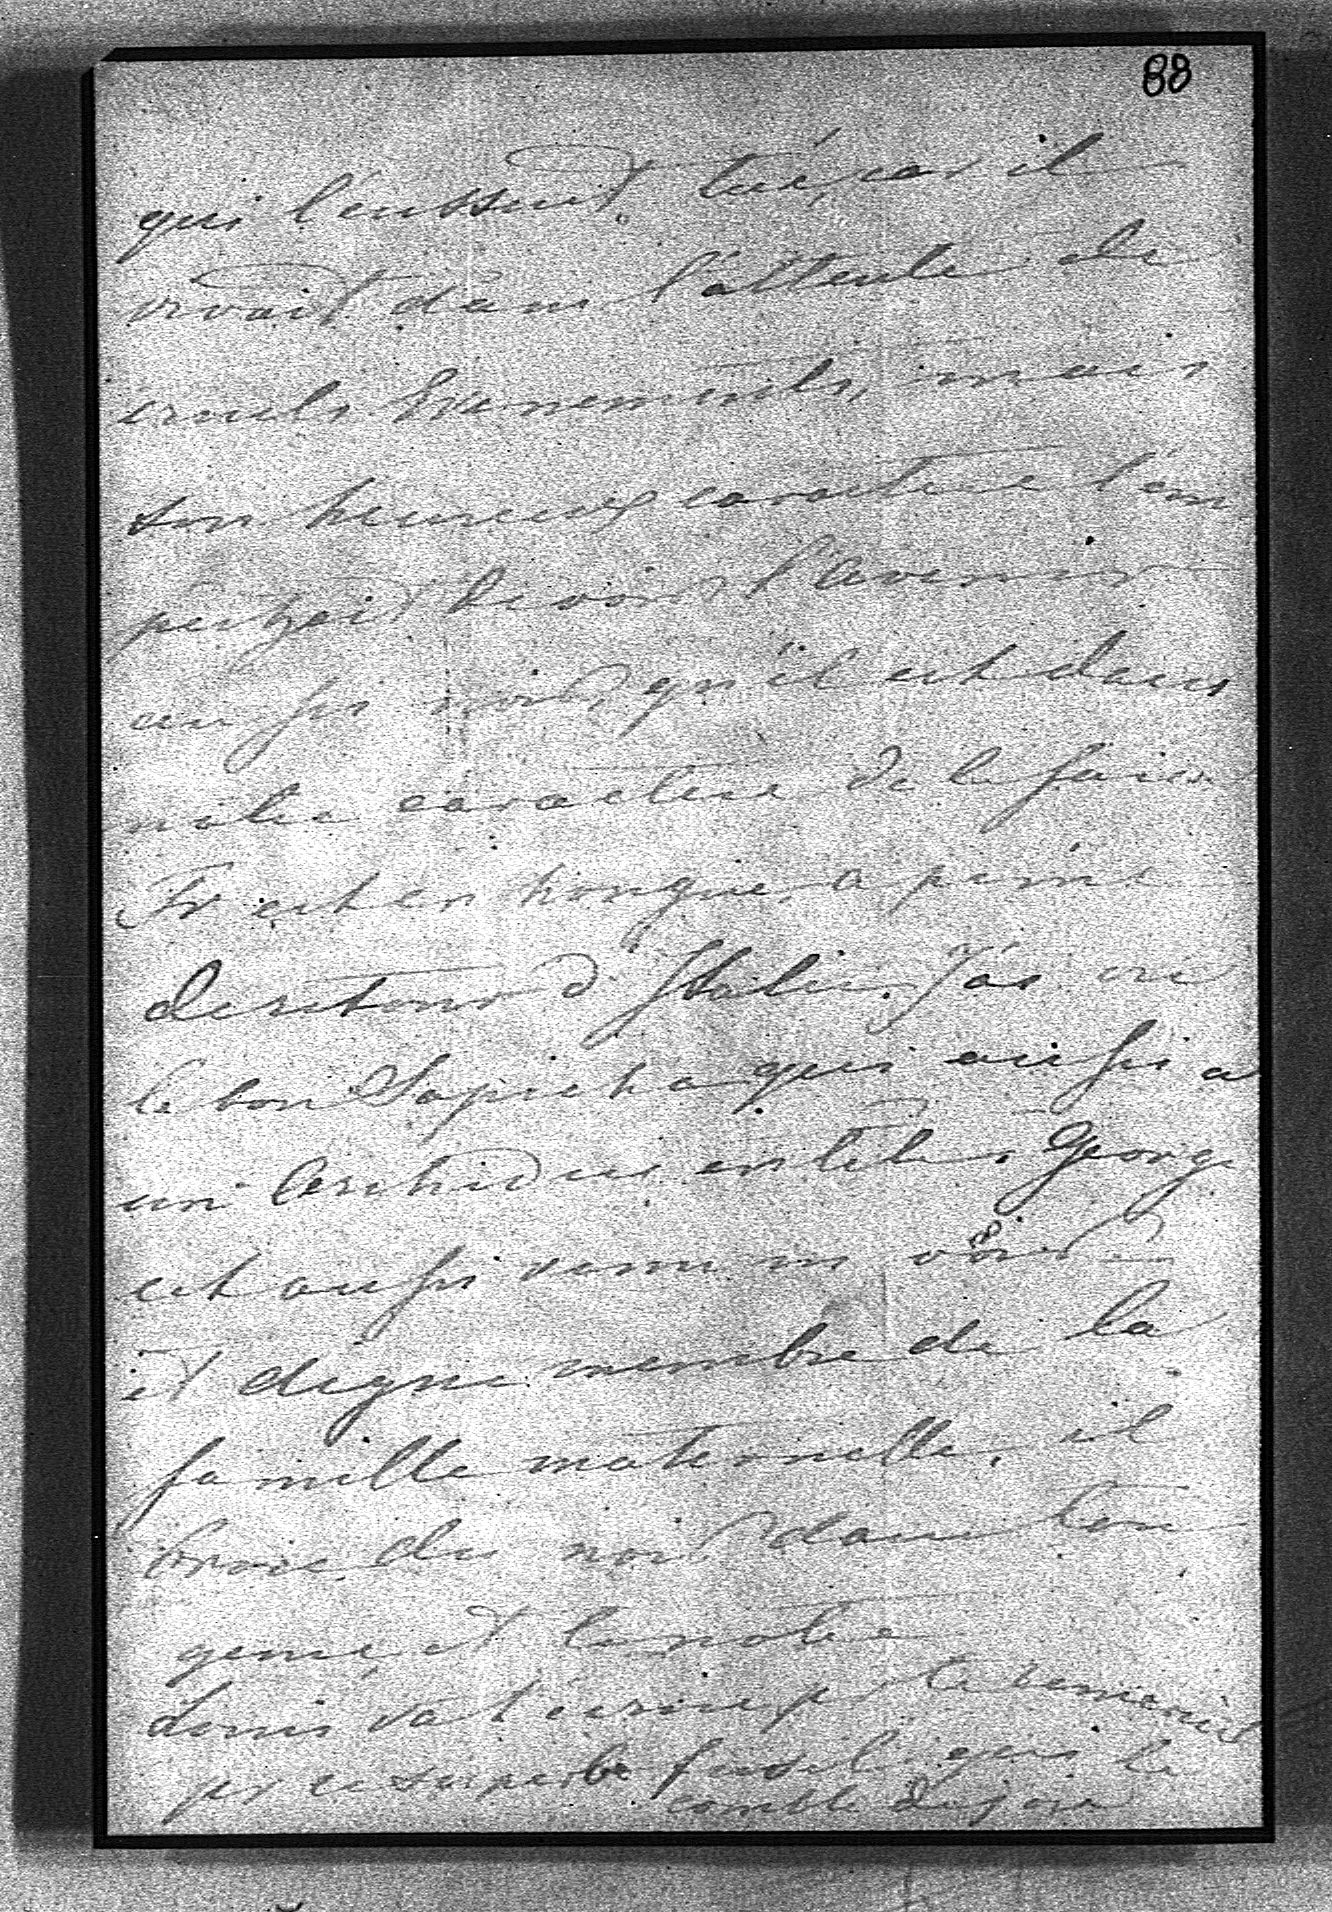 88
qui l'eussent tué, car il
vivait dans l'attente de
cruels evenements, mais
son heureux caractere l'em
pechait de voir l'avenir
aussi noir qu'il est dans
notre caractere de le faire
Fr est en hongrie, a peine
de retour d'Italie. J'ai vu
le bon Sapieha qui aussi a
un Archiduc en tête, George
est aussi venu me voir
et digne membre de la
famille maternelle, il
broie du noir dans son
genre, et le notre
Louis va t'écrire pr te remercier
pr ce superbe fusil qui le
comble de joie